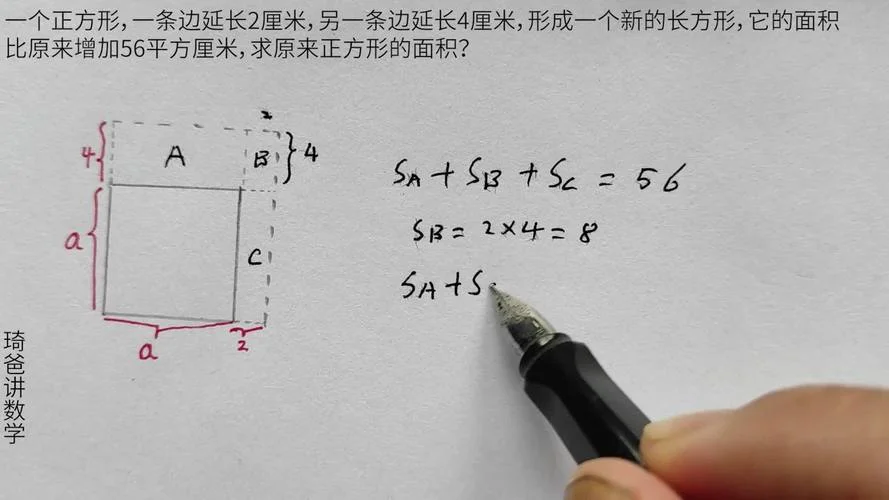 一个正方形,一条边延长2厘米,另一条边延长4厘米,形成一个新的长方形,它的面积
比原来增加56平方厘米,求原来正方形的面积?
2
4 A B 4
a C
a 2
SA + SB + SC = 56
SB = 2×4 = 8
SA + S
琦爸讲数学